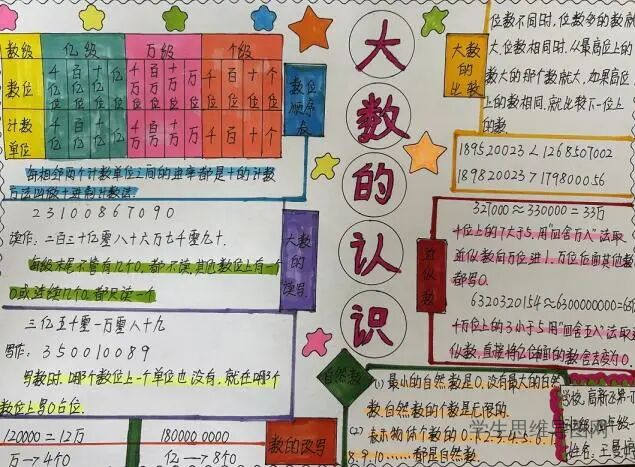 数级 亿级 万级 个级
数位 千亿位 百亿位 十亿位 亿位 千万位 百万位 十万位 万位 千位 百位 十位 个位
计数单位 千亿 百亿 十亿 亿 千万 百万 十万 万 千 百 十 个
数位顺序表
每相邻两个计数单位之间的进率都是十的计数
方法叫做十进制计数法.
23100867090
读作: 二百三十亿零八十六万七千零九十.
每级末尾不管有几个0,都不读,其他数位上有一个
0或连续几个0,都只读一个
大数的读写
三亿五千零一万零八十九
写作: 350010089
写数时,哪个数位上一个单位也没有,就在哪个
数位上写0占位.
120000=12万
万→4个0
180000 0000
亿→8个0
数的改写
大数的认识
大数的比较
位数不同时,位数多的数就
大,位数相同时,从最高位上的
数大的那个数就大,如果高位
上的数相同,就比较下一位上
的数.
189520023<1268507002
189820023>179800056
近似数
327000≈330000=33万
十位上的7大于5,用"四舍五入"法取
近似数向万位进1,万位后面其他数
都写0.
6320320154≈6300000000=
十万位上的3小于5用"四舍五入"法取
似数,直接将
的数舍去变为0.
自然数
(1) 最小的自然数是0,没有最大的自然
数,自然数的个数是无限的.
(2) 表示物体个数的0.1.2.3.4.5.6.7.
8.9.10.……都是自然数.
学校:
班级:
姓名:王
学生思维导图网